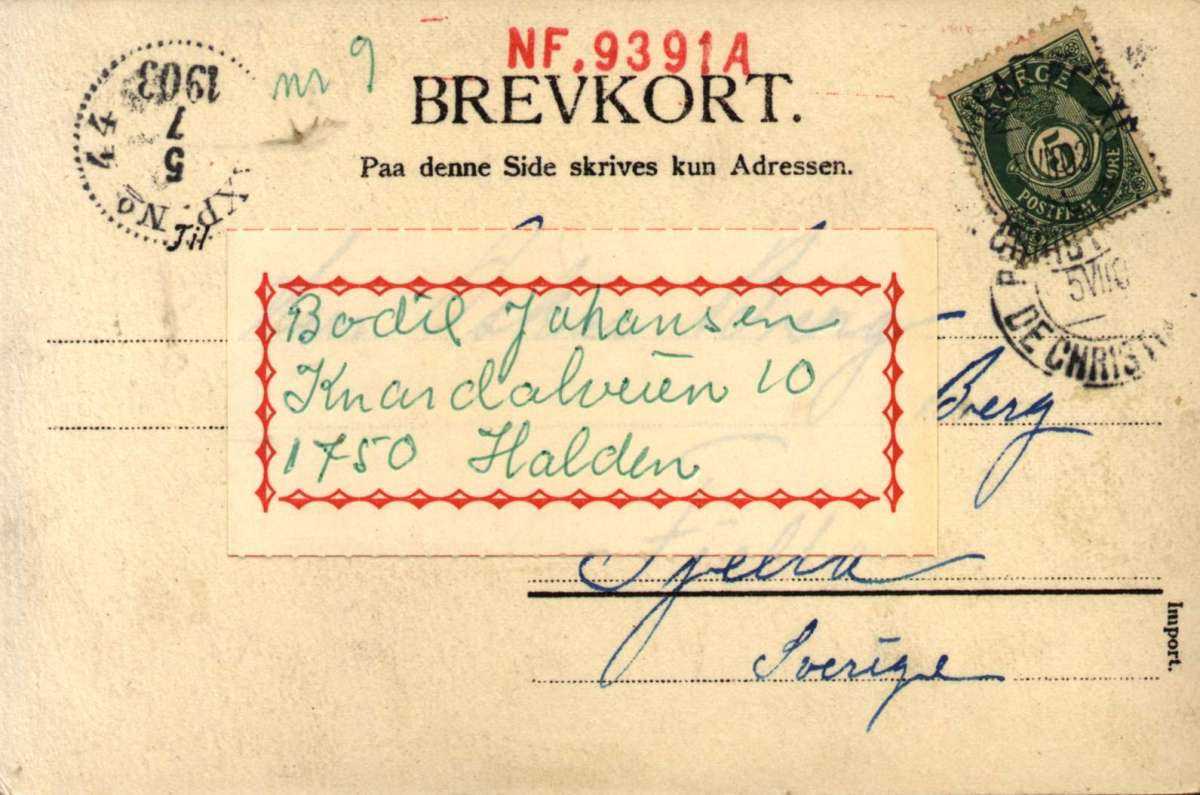 NF.9391A
nr 9
BREVKORT.
Paa denne Side skrives kun Adressen.
1903
5
7
XP. No 47
Til
NORGE
5
POSTFRIM. 5 ØRE
5 VII 03
DE CHRISTI
Bodil Johansen
Knardalveien 10
1750 Halden
Berg
Sverige
Import.